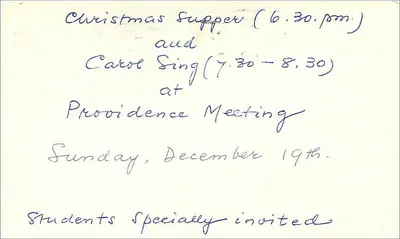 Christmas Supper (6.30.pm.)
and
Carol Sing (7.30 - 8.30)
at
Providence Meeting
Sunday, December 19th.
Students specially invited